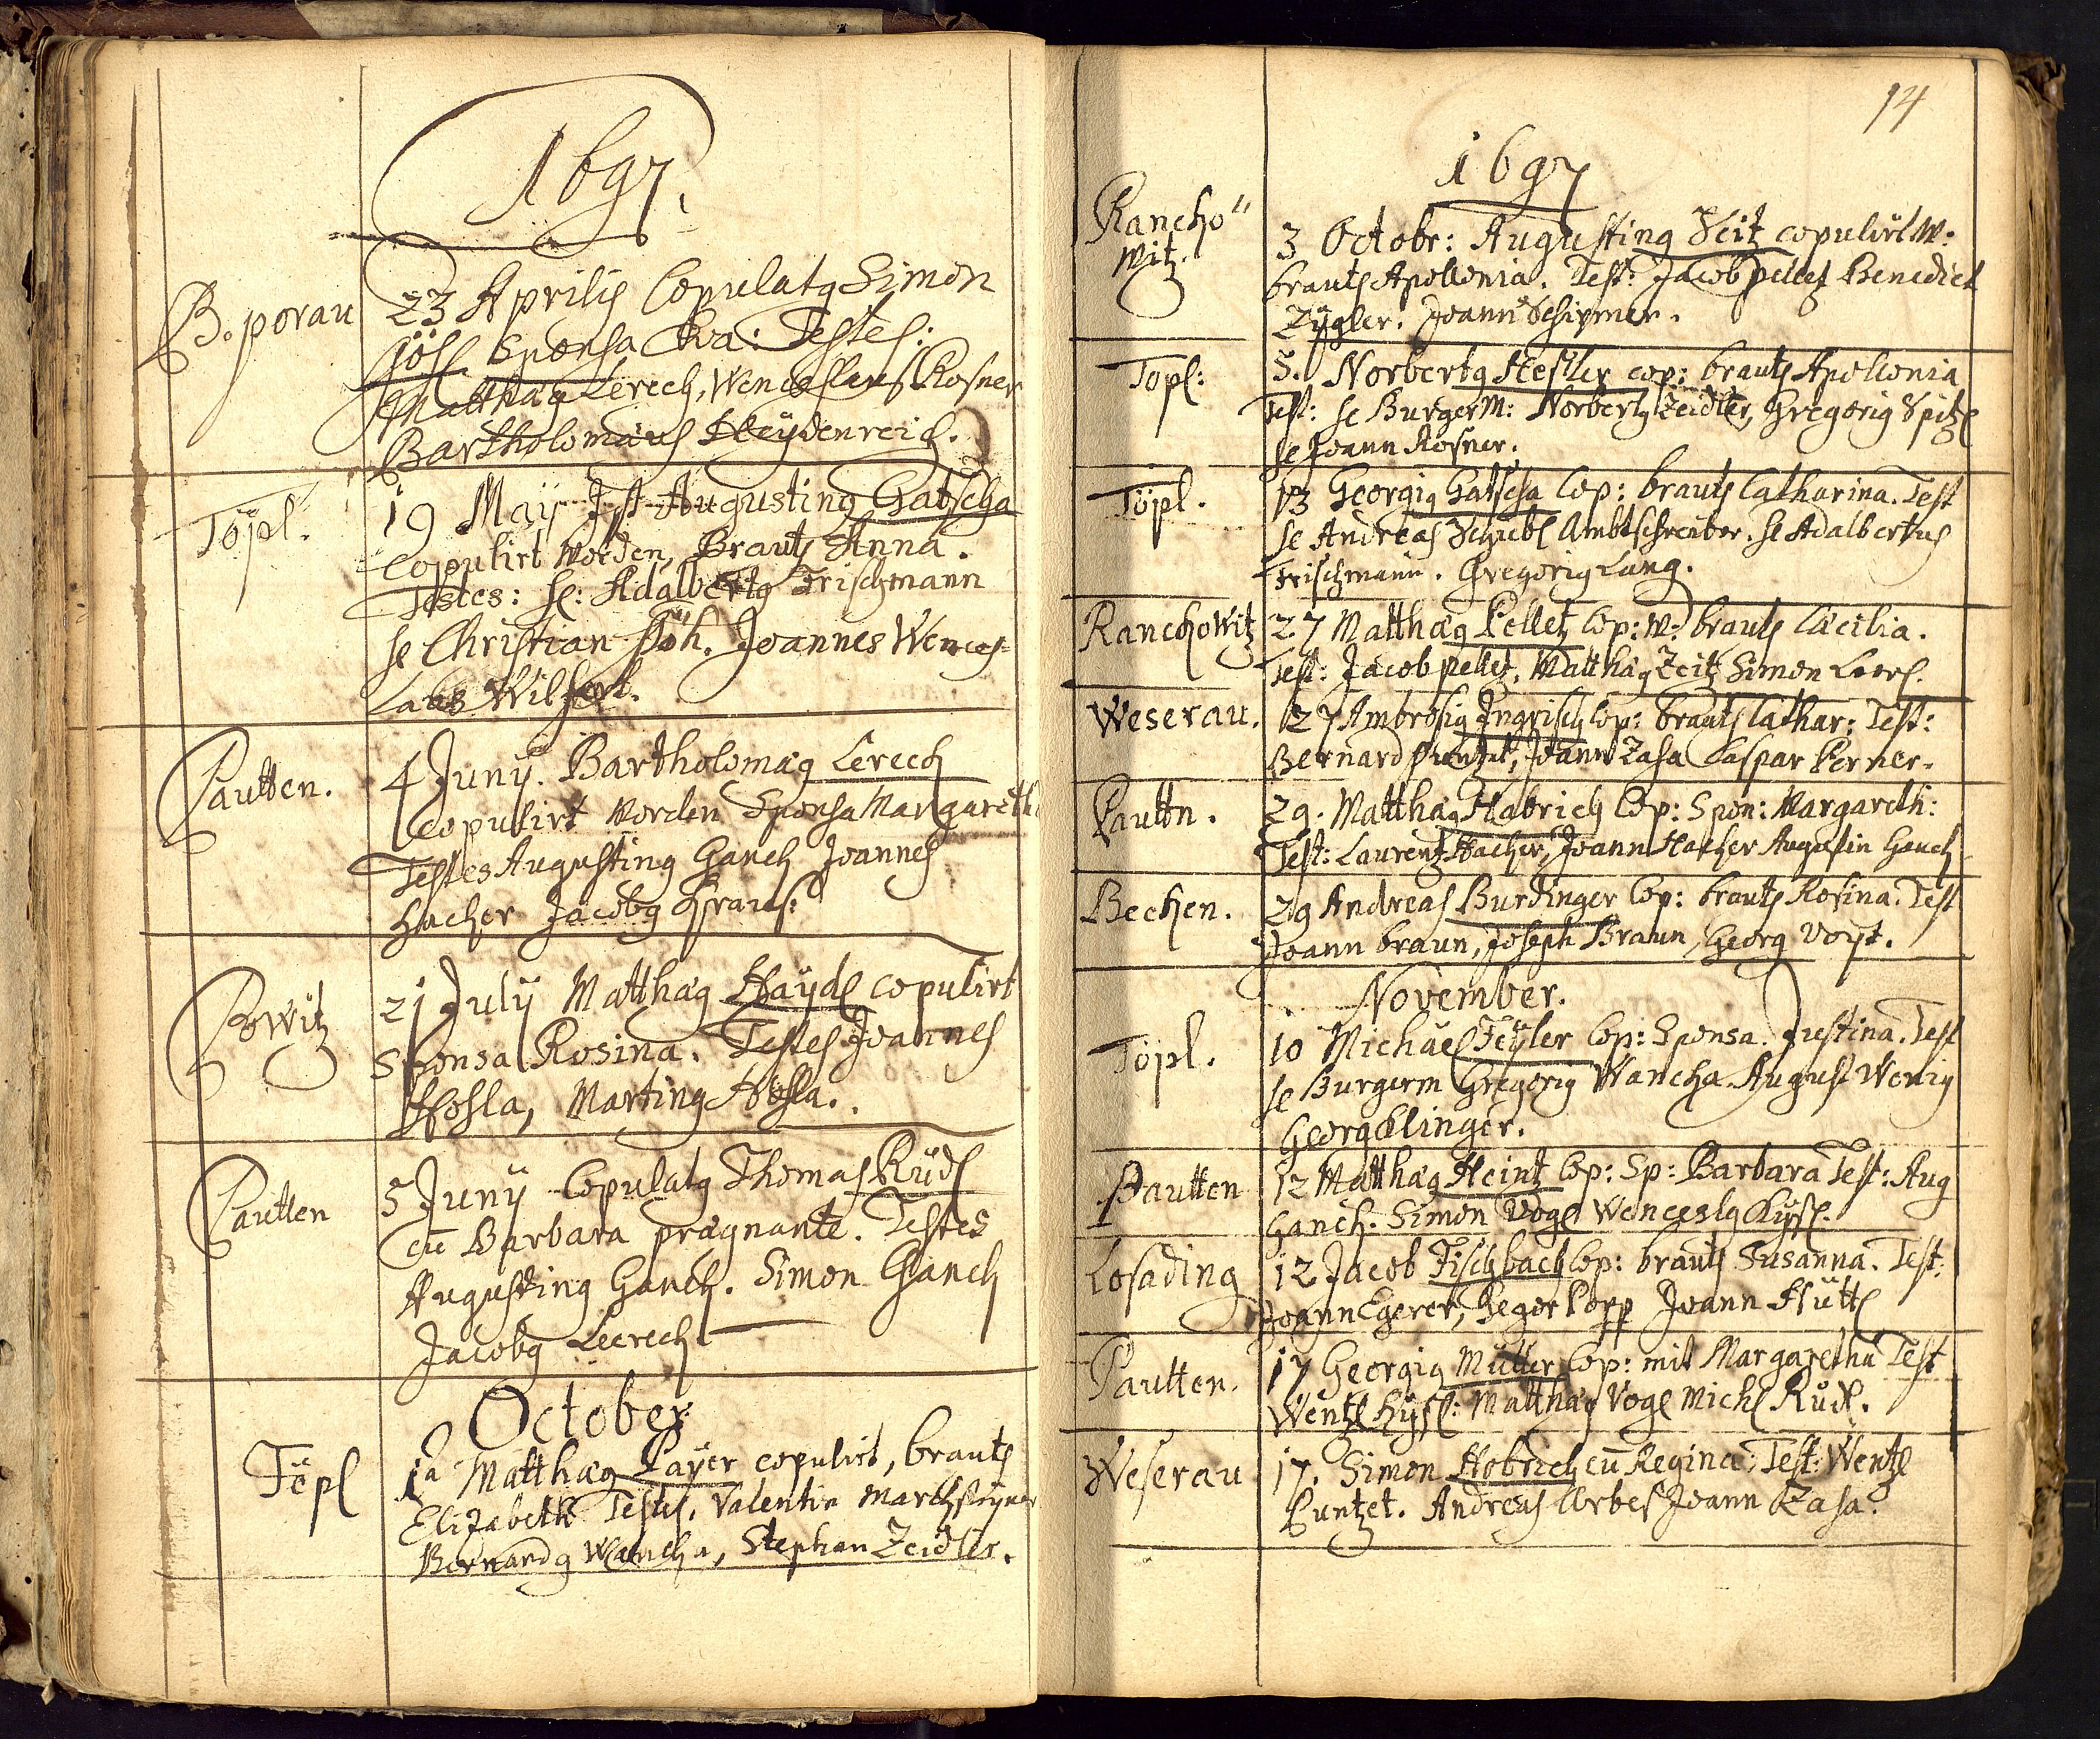 1697.
B. porau
23 Aprilis Copulatq Simon
Gösl Sponsa Eva: Testes:
Matthäq Lerech, Wenceslaus Rosner
Bartholomäus Heydenreich.
Töpl.
19 Maÿ Ist Augustinq Gatscha
Copulirt worden, Brauts Anna.
Testes: H: Adalbertq Frischmann
H Christian Höh. Joannes Wences=
Laus Wilfert.
Pautten.
4 Junÿ. Bartholomäq Lerech
Copulirt worden Sponsa Margareth
Testes Augustinq Ganch Joannes
Hacher Jacobq Kraus.
Rowitz
21 Julÿ Matthäq Haÿdl copulirt
Sponsa Rosina. Testes Joannes
Hosla, Martinq Hosla.
Pautten
5 Junÿ Copulatq Thomas Rüdl
cū Barbara prægnante. Testes
Augustinq Ganch. Simon Ganch
Jacobq Leerech
October
Töpl
1a Matthäq Payer copulirt, brauts
Elizabeth Testes. Valentin
Bernardq Wancha, Stephan Zeidler.
14
1697
Rancho"
witz.
3 Octobr: Augustinq Seitz copulirt W:
brauts Apollonia. Test: Jacob pelletz Benedict
Zÿgler. Joann Schirmer.
Töpl:
5. Norbertq Hessler cop: brauts Apollonia
Test: H BurgerM: Norbertq Zeidler, Gregoriq Spitzl
H Joann Rosner.
Töpl.
13 Georgiq Gatscha Cop: brauts Catharina. Test
H Andreas Ambtschreiber. H Adalbertus
Frischmann. Gregoriq Lang.
Ranchowitz
27 Matthäq Pelletz Cop: W: brauts Cäcilia.
Test: Jacob pelletz. Matthäq Zeitz Simon
Weserau.
27 Ambrosiq Ingrisch Cop: brauts Cathar: Test:
Bernard Puntzet, Joann Zasa Caspar Perner.
Pauttn.
29. Matthäq Habrich Cop: Spon: Margareth:
Test: Laurentz Hacher, Joann Hacher Augustin Ganch
Bechen.
29 Andreas Burdinger Cop: brauts Rosina. Test
Joann braun, Joseph Braun, Georg Voyt.
November.
Töpl.
10 Michäel Feÿler Cop: Sponsa. Justina. Test
H Burgerm Gregoriq Wancha. August Wenig
Georg Klinger.
Pautten
12 Matthäq Heintz Cop: Sp: Barbara Test: Aug
Ganch. Simon Vogl Wenceslq Kÿsl.
Losading
12 Jacob Fischbach Cop: brauts Susanna. Test:
Joann Egerer, Gegor Popp Joann Hüttl
Pautten.
17 Georgiq Müller Cop: mit Margaretha Test
Wentzl Kÿsl: Matthäq Vogl Michl Rüdl.
Weserau
17. Simon Hobrich cū Regina; Test: Wentzl
Puntzet. Andreas Erbes Joann Zasa.